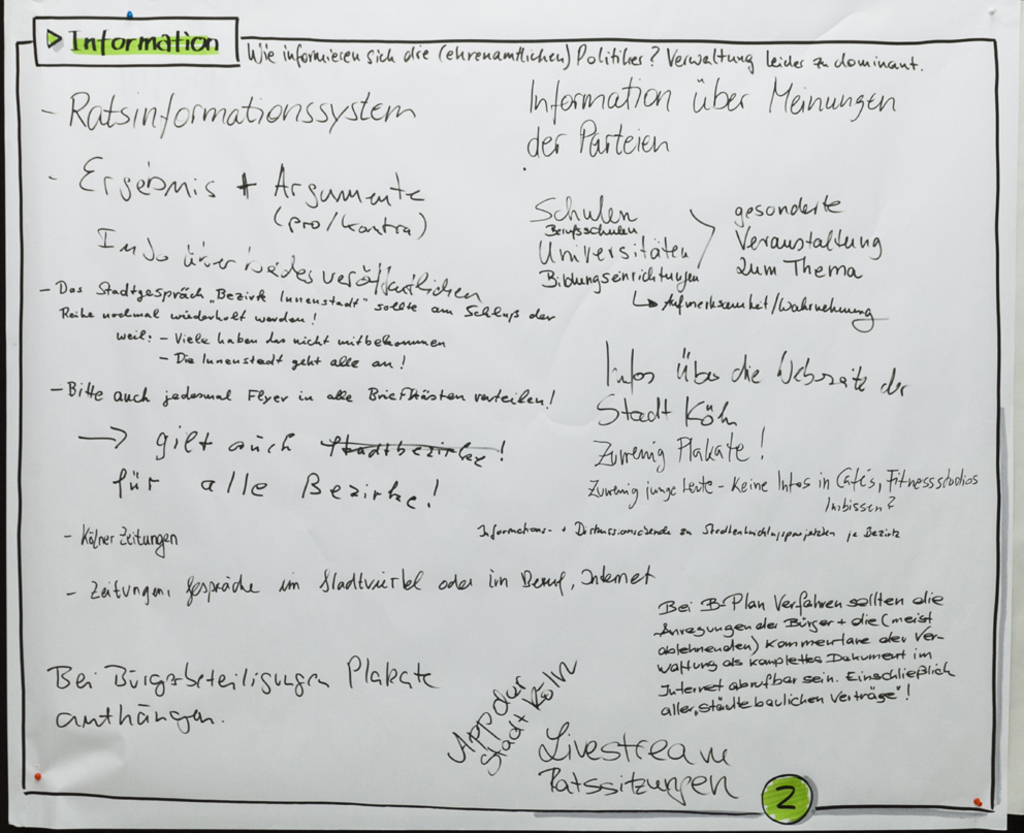 Information
Wie informieren sich die (ehrenamtlichen) Politiker? Verwaltung leider zu dominant.
- Ratsinformationssystem
- Ergebnis + Argumente
(pro/kontra)
Info über beides veröffentlichen
- Das Stadtgespräch „Bezirk Innenstadt" sollte am Schluß der
Reihe nochmal wiederholt werden!
weil: - Viele haben das nicht mitbekommen
- Die Innenstadt geht alle an!
- Bitte auch jedesmal Flyer in alle Briefkästen verteilen!
→ gilt auch Stadtbezirke!
für alle Bezirke!
- Kölner Zeitungen
- Zeitungen, Gespräche im Stadtviertel oder im Beruf, Internet
Bei Bürgerbeteiligungen Plakate
aufhängen.
Information über Meinungen
der Parteien
Schulen
Berufsschulen
Universitäten
Bildungseinrichtungen
gesonderte
Veranstaltung
zum Thema
↳ Aufmerksamkeit/Wahrnehmung
Infos über die Webseite der
Stadt Köln
Zuwenig Plakate!
Zuwenig junge Leute - Keine Infos in Cafés, Fitnessstudios
Imbissen?
Informations- + Diskussionsabende zu Stadtentwicklungsprojekten je Bezirk
Bei B-Plan Verfahren sollten die
Anregungen der Bürger + die (meist
ablehnenden) Kommentare der Ver-
waltung als komplettes Dokument im
Internet abrufbar sein. Einschließlich
aller „städtebaulichen Verträge"!
App der
Stadt Köln
Livestream
Ratssitzungen
2